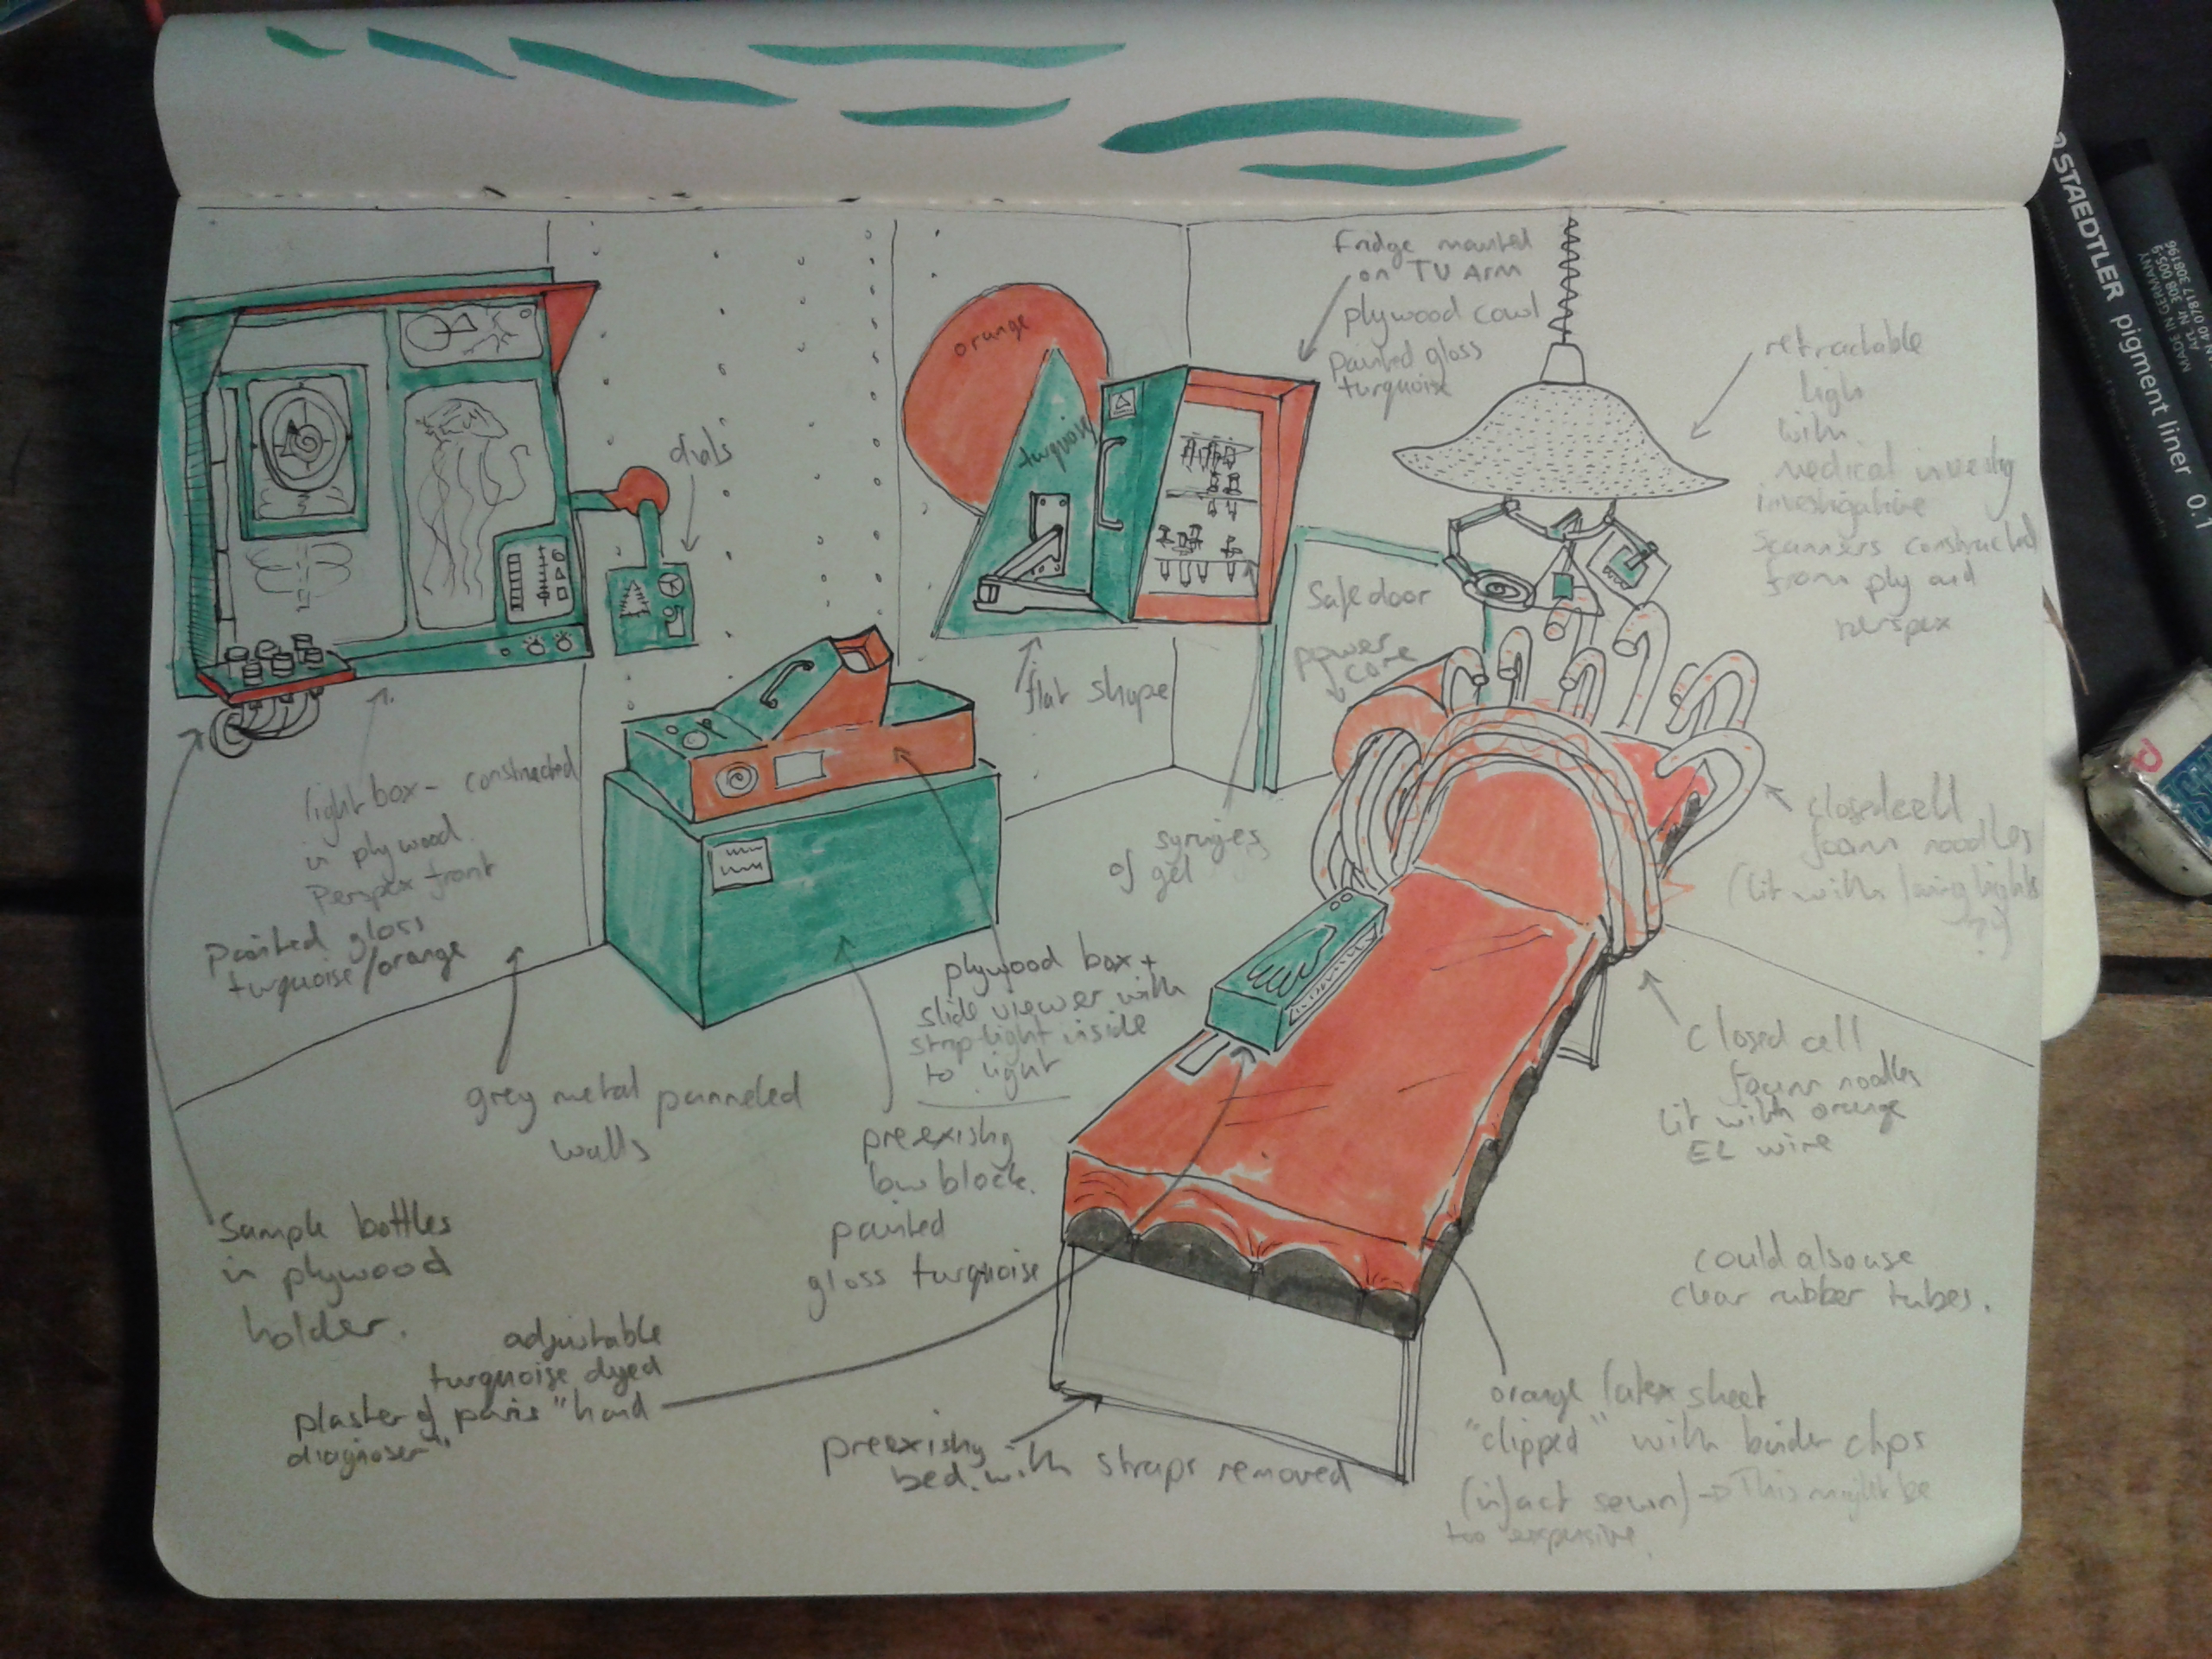 Fridge mounted
on TV Arm
plywood cowl
painted gloss
turquoise
orange
turquoise
dials
retractable
ligh
with
medical
investigative
scanners constructed
from ply and
perspex
Safe door
power
core
flat shape
light box - constructed
in plywood.
Perspex front
painted gloss
turquoise/orange
syringes
of gel
closed cell
foam noodles
(lit with living lights
?)
plywood box +
slide viewer with
strip-light inside
to light
closed cell
foam noodles
lit with orange
EL wire
grey metal panneled
walls
preexisty
low block.
painted
gloss turquoise
Sample bottles
in plywood
holder.
could also use
clear rubber tubes.
adjustable
turquoise dyed
plaster of paris "hand
diagnoser"
preexisty
bed. with straps removed
orange latex sheet
"clipped" with binder clips
(infact sewn) → This might be
too expensive.
STAEDTLER pigment liner 0.1
MADE IN GERMANY